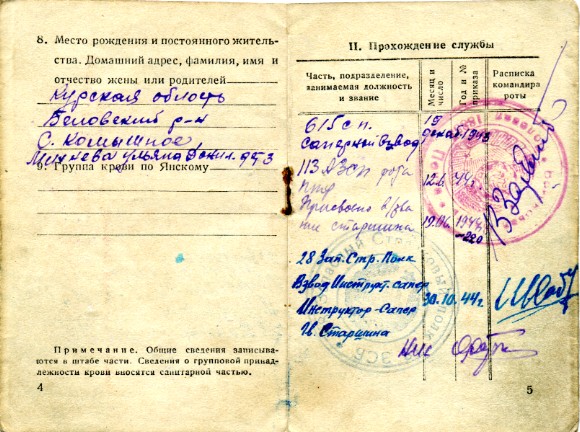 8. Место рождения и постоянного житель-
ства. Домашний адрес, фамилия, имя и
отчество жены или родителей
Курская область
Беловский р-н
С. Камышное,
Ульяна
9. Группа крови по Янскому
Примечание. Общие сведения записыва-
ются в штабе части. Сведения о групповой принад-
лежности крови вносятся санитарной частью.
4
II. Прохождение службы
Часть, подразделение,
занимаемая должность
и звание
Месяц и
число
Год и №
приказа
Расписка
командира
роты
615 с п.
Саперный взвод
19
декаб. 1943
113 АЗСП рота
птр
12.6
44 г.
Присвоено зва
ние старшина
19.06.
1944
220
28 Зап. Стр. Полк
Взвод Инструкт. сапер
Инструктор-Сапер
30.10.44 г.
Гв. Старшина
5